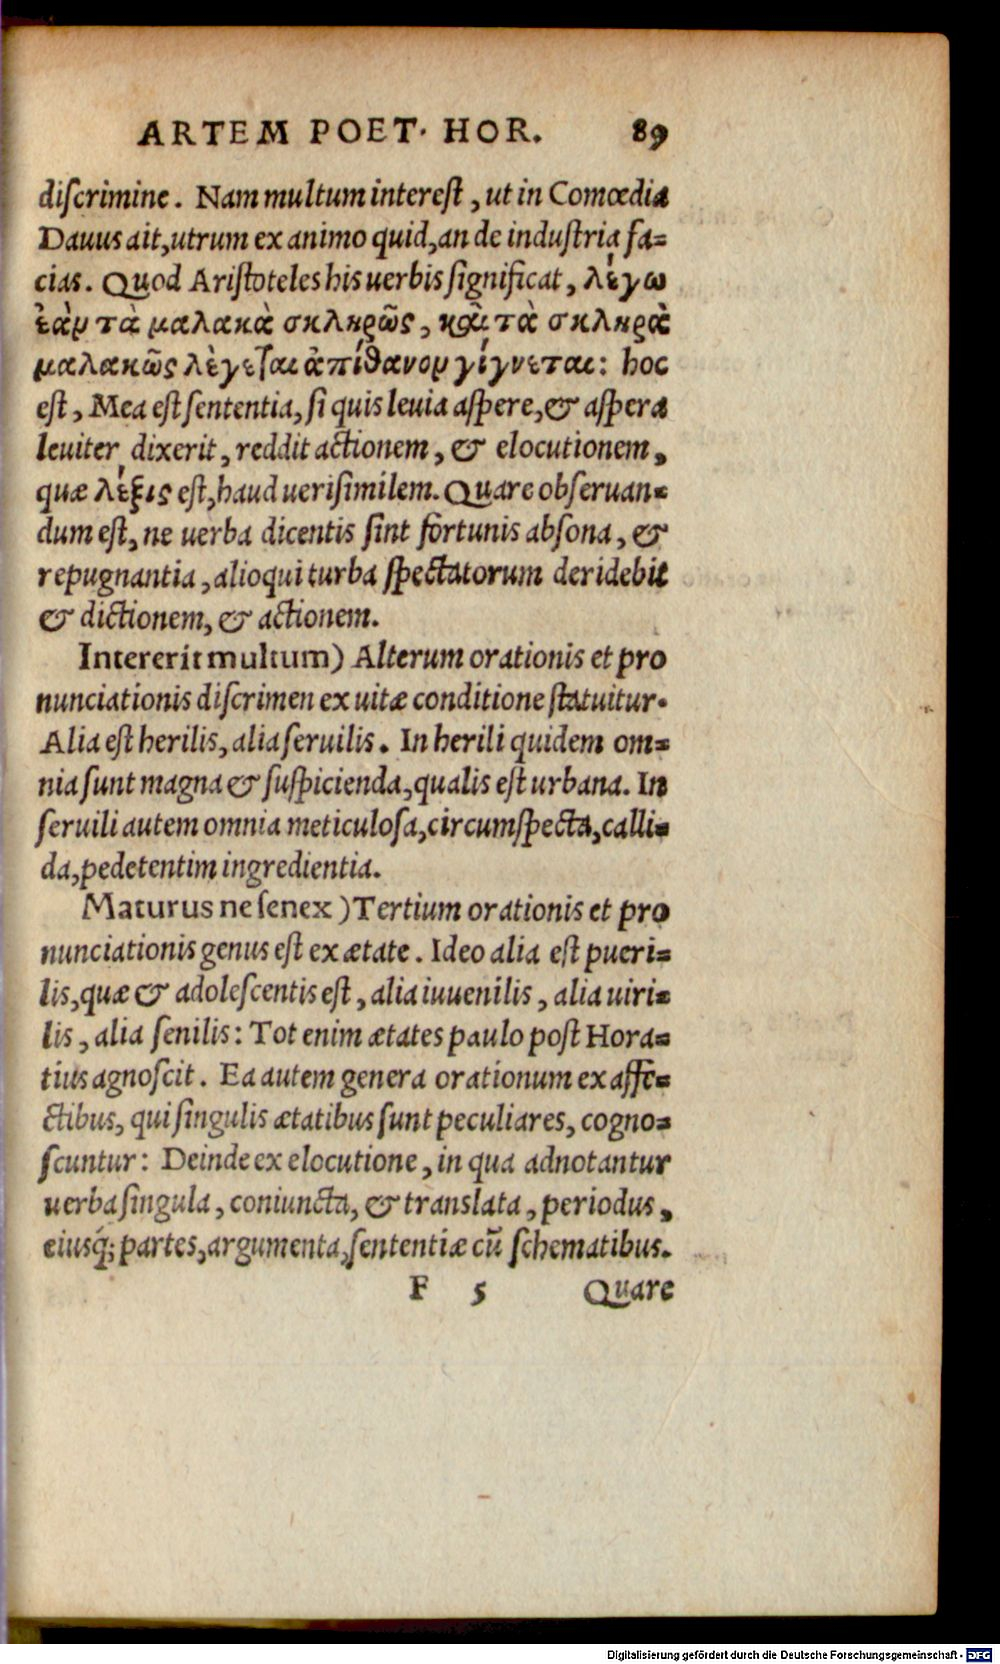 ARTEM POET. HOR. 89
diſcrimine. Nam multum intereſt, ut in Comœdia
Dauus ait, utrum ex animo quid, an de induſtria fa-
cias. Quod Ariſtoteles his uerbis ſignificat, λέγω
ἐὰν τὰ μαλακὰ σκληρῶς, καὶ τὰ σκληρὰ
μαλακῶς λέγεται ἀπίθανον γίγνεται: hoc
eſt, Mea eſt ſententia, ſi quis leuia aſpere, & aſpera
leuiter dixerit, reddit actionem, & elocutionem,
quæ λέξις eſt, haud ueriſimilem. Quare obſeruan-
dum eſt, ne uerba dicentis ſint fortunis abſona, &
repugnantia, alioqui turba ſpectatorum deridebit
& dictionem, & actionem.
Intererit multum) Alterum orationis et pro
nunciationis diſcrimen ex uitæ conditione ſtatuitur.
Alia eſt herilis, alia ſeruilis. In herili quidem om-
nia ſunt magna & ſuſpicienda, qualis eſt urbana. In
ſeruili autem omnia meticuloſa, circumſpecta, calli-
da, pedetentim ingredientia.
Maturus ne ſenex) Tertium orationis et pro
nunciationis genus eſt ex ætate. Ideo alia eſt pueri-
lis, quæ & adoleſcentis eſt, alia iuuenilis, alia uiri-
lis, alia ſenilis: Tot enim ætates paulo poſt Hora-
tius agnoſcit. Ea autem genera orationum ex affe-
ctibus, qui ſingulis ætatibus ſunt peculiares, cogno-
ſcuntur: Deinde ex elocutione, in qua adnotantur
uerba ſingula, coniuncta, & translata, periodus,
eiusq́; partes, argumenta, ſententiæ cū ſchematibus.
F 5 Quare
Digitalisierung gefördert durch die Deutsche Forschungsgemeinschaft - DFG